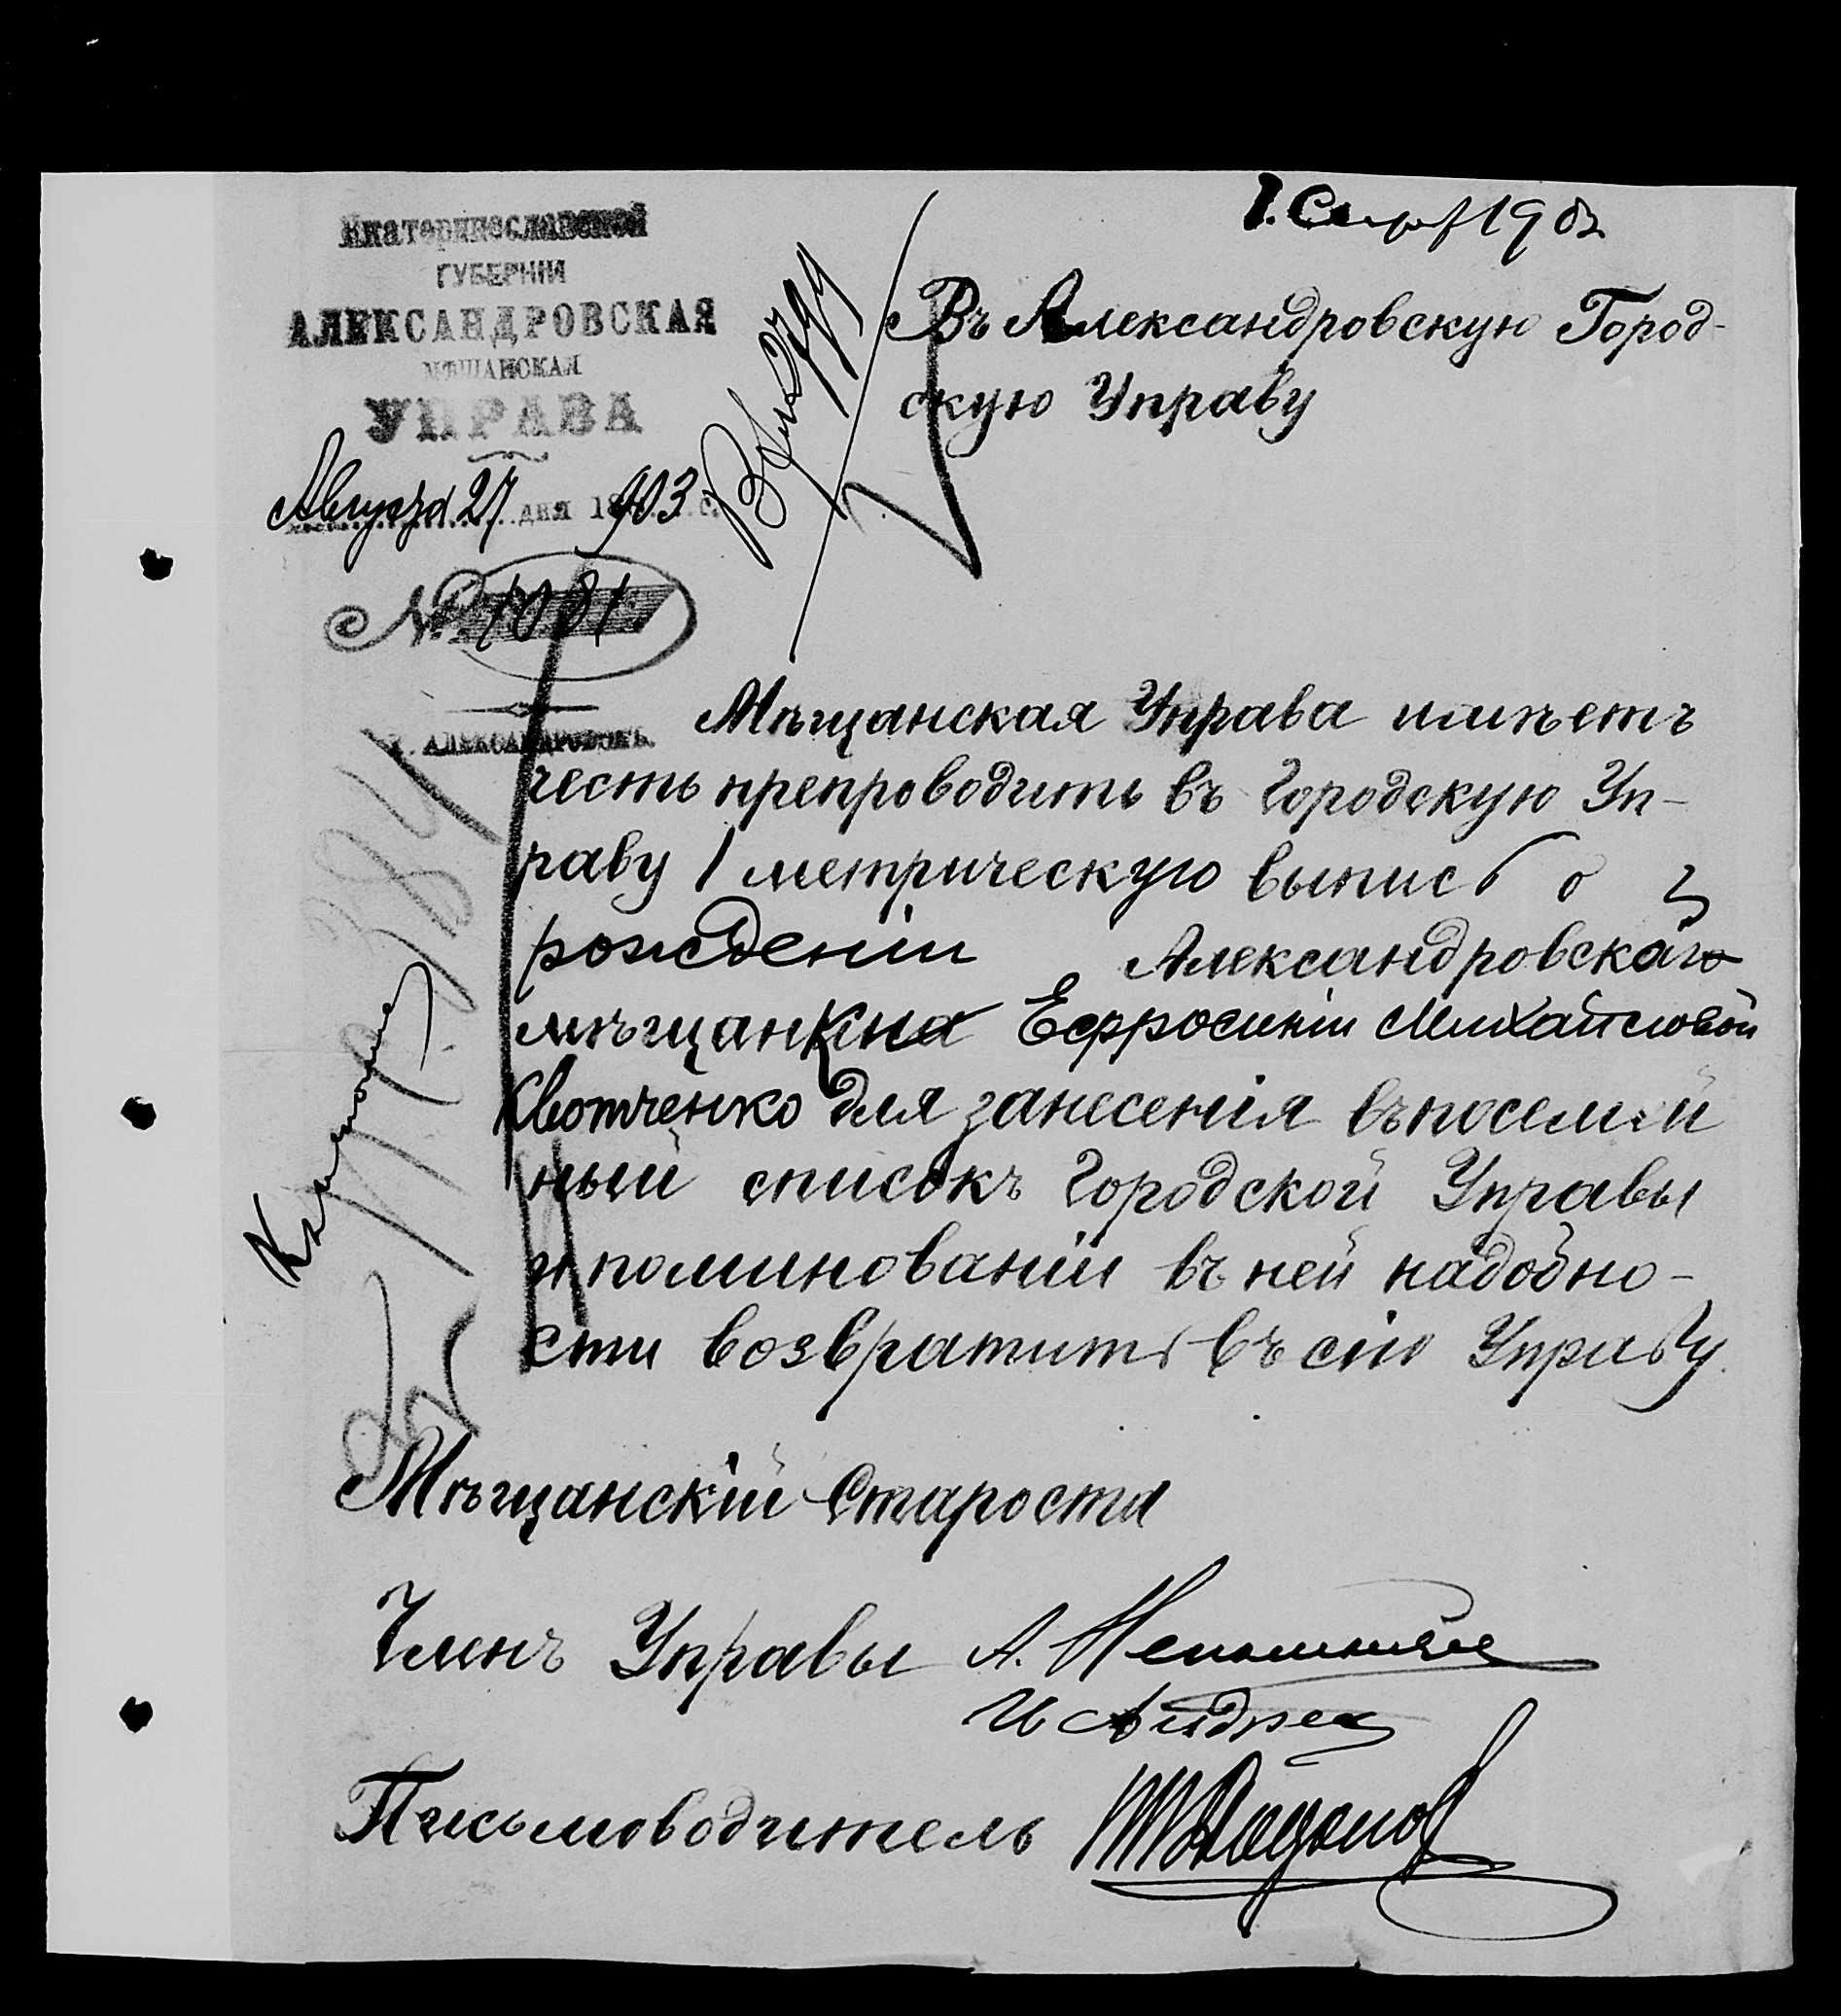 Екатеринославской
ГУБЕРНІИ
АЛЕКСАНДРОВСКАЯ
МѢЩАНСКАЯ
УПРАВА
Августа 27 дня 1903 г.
№ 1081
Г. АЛЕКСАНДРОВСКЪ.
Въ Александровскую Город-
скую Управу
Мѣщанская Управа имѣетъ
честь препроводить въ Городскую Уп-
раву 1 метрическую выпись о
рожденіи Александровскаго
мѣщанки Ефросиніи Михайловой
для занесенія въ посемей
ный списокъ Городской Управы
и по минованіи въ ней надобно-
сти возвратить въ сію Управу.
Мѣщанскій Староста
Членъ Управы А.
Письмоводитель